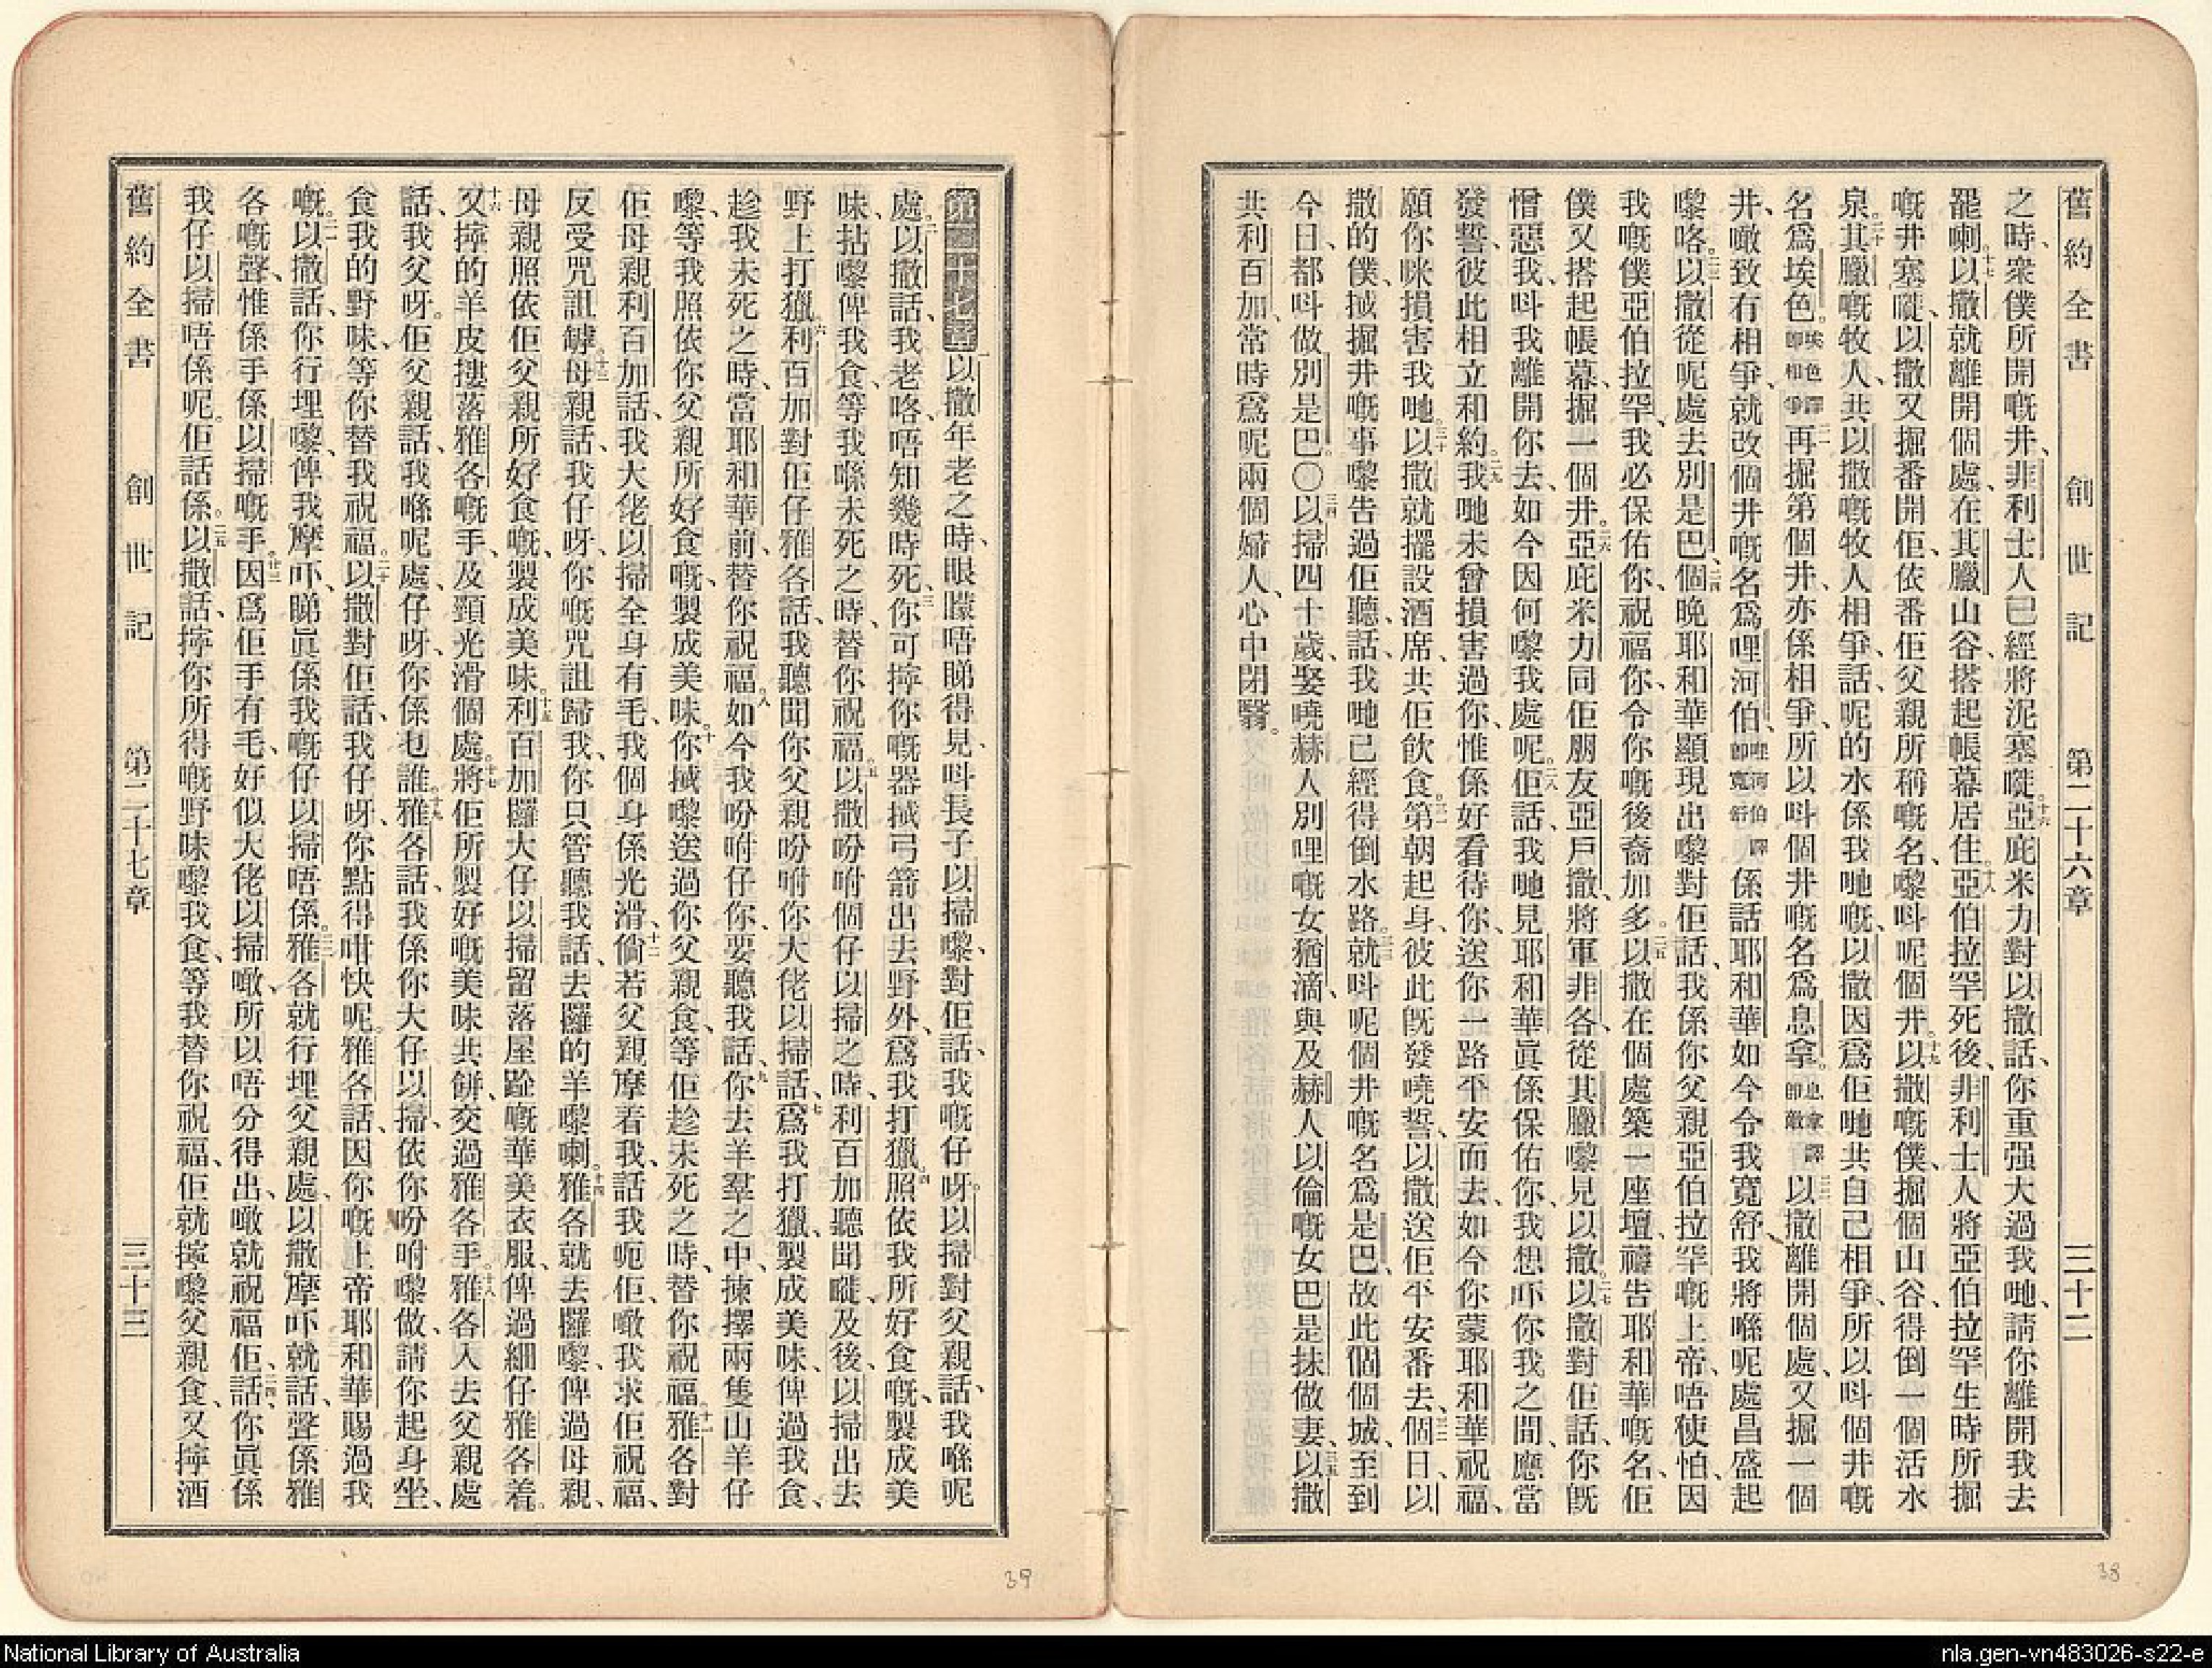 舊約全書 創世記 第二十六章 三十二
之時、衆僕所開嘅井、非利士人已經將泥塞嘥。十六亞庇米力對以撒話、你重强大過我哋、請你離開我去
罷喇。十七以撒就離開個處、在其臘山谷、搭起帳幕居住。十八亞伯拉罕死後、非利士人將亞伯拉罕生時所掘
嘅井塞嘥、以撒又掘番開佢、依番佢父親所稱嘅名、嚟呌呢個井。十九以撒嘅僕、掘個山谷、得倒一個活水
泉。二十其臘嘅牧人、共以撒嘅牧人相爭、話、呢的水係我哋嘅、以撒因爲佢哋共自己相爭、所以呌個井嘅
名爲埃色。埃色譯即相爭二一再掘第個井、亦係相爭、所以呌個井嘅名爲息拿。息拿譯即敵二二以撒離開個處、又掘一個
井、噉致有相爭、就改個井嘅名爲哩河伯、哩河伯譯即寬舒係話、耶和華如今令我寬舒、我將喺呢處昌盛起
嚟咯。二三以撒從呢處去別是巴、二四個晚耶和華顯現出嚟對佢話、我係你父親亞伯拉罕嘅上帝、唔使怕、因
我嘅僕亞伯拉罕、我必保佑你、祝福你、令你嘅後裔加多。二五以撒在個處築一座壇、禱告耶和華嘅名、佢
僕又搭起帳幕、掘一個井。二六亞庇米力同佢朋友亞戶撒、將軍非各、從其臘嚟見以撒。二七以撒對佢話、你旣
憎惡我、呌我離開你去、如今因何嚟我處呢。二八佢話、我哋見耶和華眞係保佑你、我想吓你我之間、應當
發誓、彼此相立和約。二九我哋未曾損害過你、惟係好看待你、送你一路平安而去、如今你蒙耶和華祝福、
願你咪損害我哋。三十以撒就擺設酒席、共佢飲食。三一第朝起身、彼此旣發嘵誓、以撒送佢平安番去。三二個日、以
撒的僕、拭掘井嘅事嚟告過佢聽、話、我哋已經得倒水路。三三就呌呢個井嘅名爲是巴、故此個個城、至到
今日、都呌做別是巴。〇三四以掃四十歲、娶嘵赫人別哩嘅女猶滴、與及赫人以倫嘅女巴是抹做妻、三五以撒
共利百加、常時爲呢兩個婦人、心中閉翳。
38
第二十七章 一以撒年老之時、眼矇唔睇得見、呌長子以掃嚟、對佢話、我嘅仔呀。以掃對父親話、我喺呢
處。二以撒話、我老咯、唔知幾時死、三你可擰你嘅器械弓箭出去野外、爲我打獵。四照依我所好食嘅、製成美
味、拈嚟俾我食、等我喺未死之時、替你祝福。五以撒吩咐個仔以掃之時、利百加聽聞嘥、及後、以掃出去
野上打獵。六利百加對佢仔雅各話、我聽聞你父親吩咐你大佬以掃話、七爲我打獵、製成美味、俾過我食、
趁我未死之時、當耶和華前、替你祝福。八如今我吩咐仔你、要聽我話、九你去羊羣之中、揀擇兩隻山羊仔
嚟、等我照依你父親所好食嘅、製成美味。十你拭嚟送過你父親食、等佢趁未死之時、替你祝福。十一雅各對
佢母親利百加話、我大佬以掃全身有毛、我個身係光滑、十二倘若父親摩着我、話我呃佢、噉我求佢祝福、
反受咒詛罅。十三母親話、我仔呀、你嘅咒詛歸我、你只管聽我話、去攞的羊嚟喇。十四雅各就去攞嚟、俾過母親、
母親照依佢父親所好食嘅、製成美味。十五利百加攞大仔以掃留落屋𨂾嘅華美衣服、俾過細仔雅各着。
十六又擰的羊皮㨢落雅各嘅手、及頸光滑個處。十七將佢所製好嘅美味共餅交過雅各手。十八雅各入去父親處
話、我父呀。佢父親話、我喺呢處、仔呀、你係乜誰。十九雅各話、我係你大仔以掃、依你吩咐嚟做、請你起身坐、
食我的野味、等你替我祝福。二十以撒對佢話、我仔呀、你點得咁快呢。雅各話、因你嘅上帝耶和華賜過我
嘅。二一以撒話、你行埋嚟、俾我摩吓、睇眞係我嘅仔以掃唔係。二二雅各就行埋父親處、以撒摩吓就話、聲係雅
各嘅聲、惟係手係以掃嘅手。二三因爲佢手有毛、好似大佬以掃、噉、所以唔分得出、噉就祝福佢。二四話、你眞係
我仔以掃唔係呢。佢話係。二五以撒話、擰你所得嘅野味嚟我食、等我替你祝福、佢就擰嚟父親食、又擰酒
舊約全書 創世記 第二十七章 三十三
39
National Library of Australia
nla.gen-vn483026-s22-e